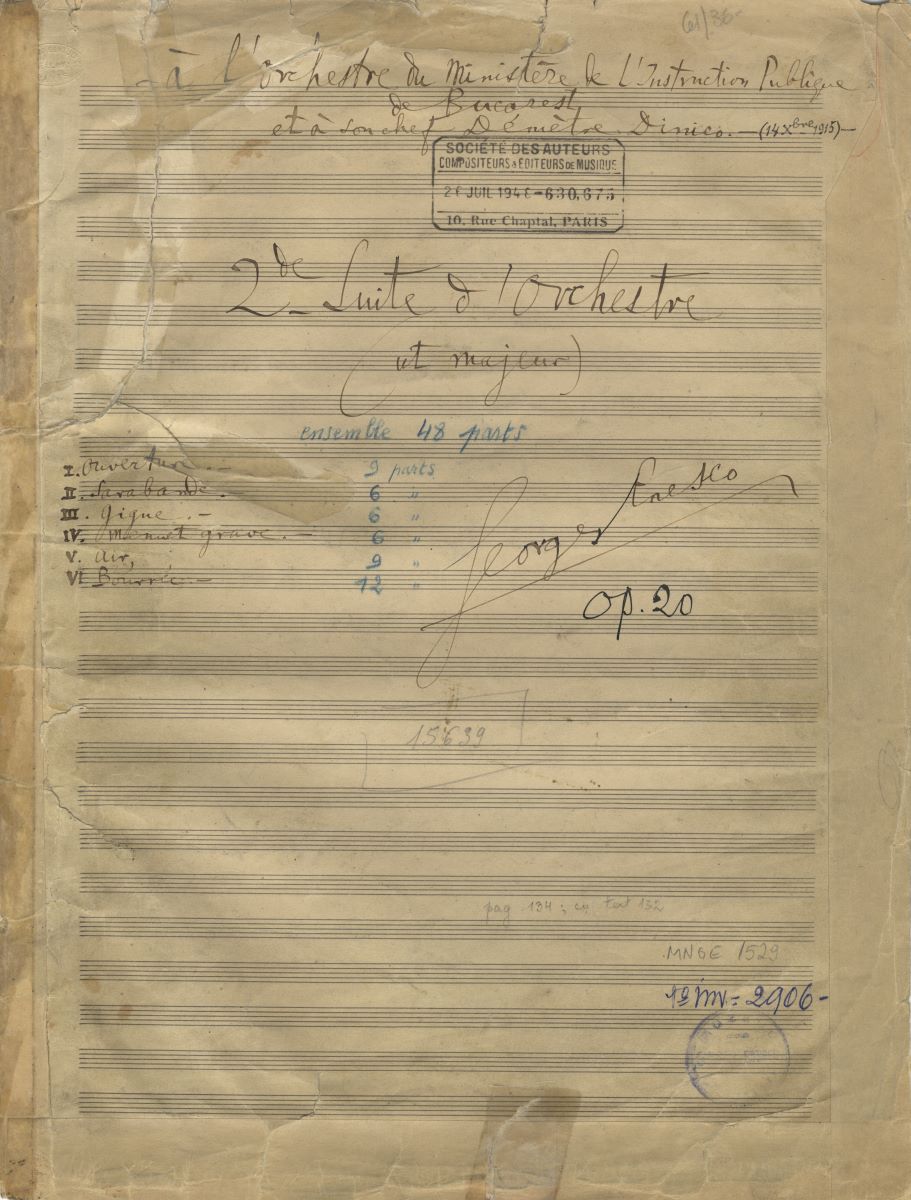 61/36-
à l'Orchestre du Ministère de L'Instruction Publique
de Bucarest,
et à son chef Démètre Dinico.—(14 Xbre 1915)—
SOCIÉTÉ DES AUTEURS
COMPOSITEURS & EDITEURS DE MUSIQUE
JUIL 194 -630,675
10, Rue Chaptal, PARIS
2de Suite d'Orchestre
(ut majeur)
ensemble 48 parts
I. Ouverture.— 9 parts
II. Sarabande. 6 "
III. Gigue.— 6 "
IV. Menuet grave.— 6 "
V. Air, 9 "
VI Bourrée.— 12 "
Georges Enesco
Op. 20
15639
pag 134; cu text 132
MNGE 1529
inv = 2906-